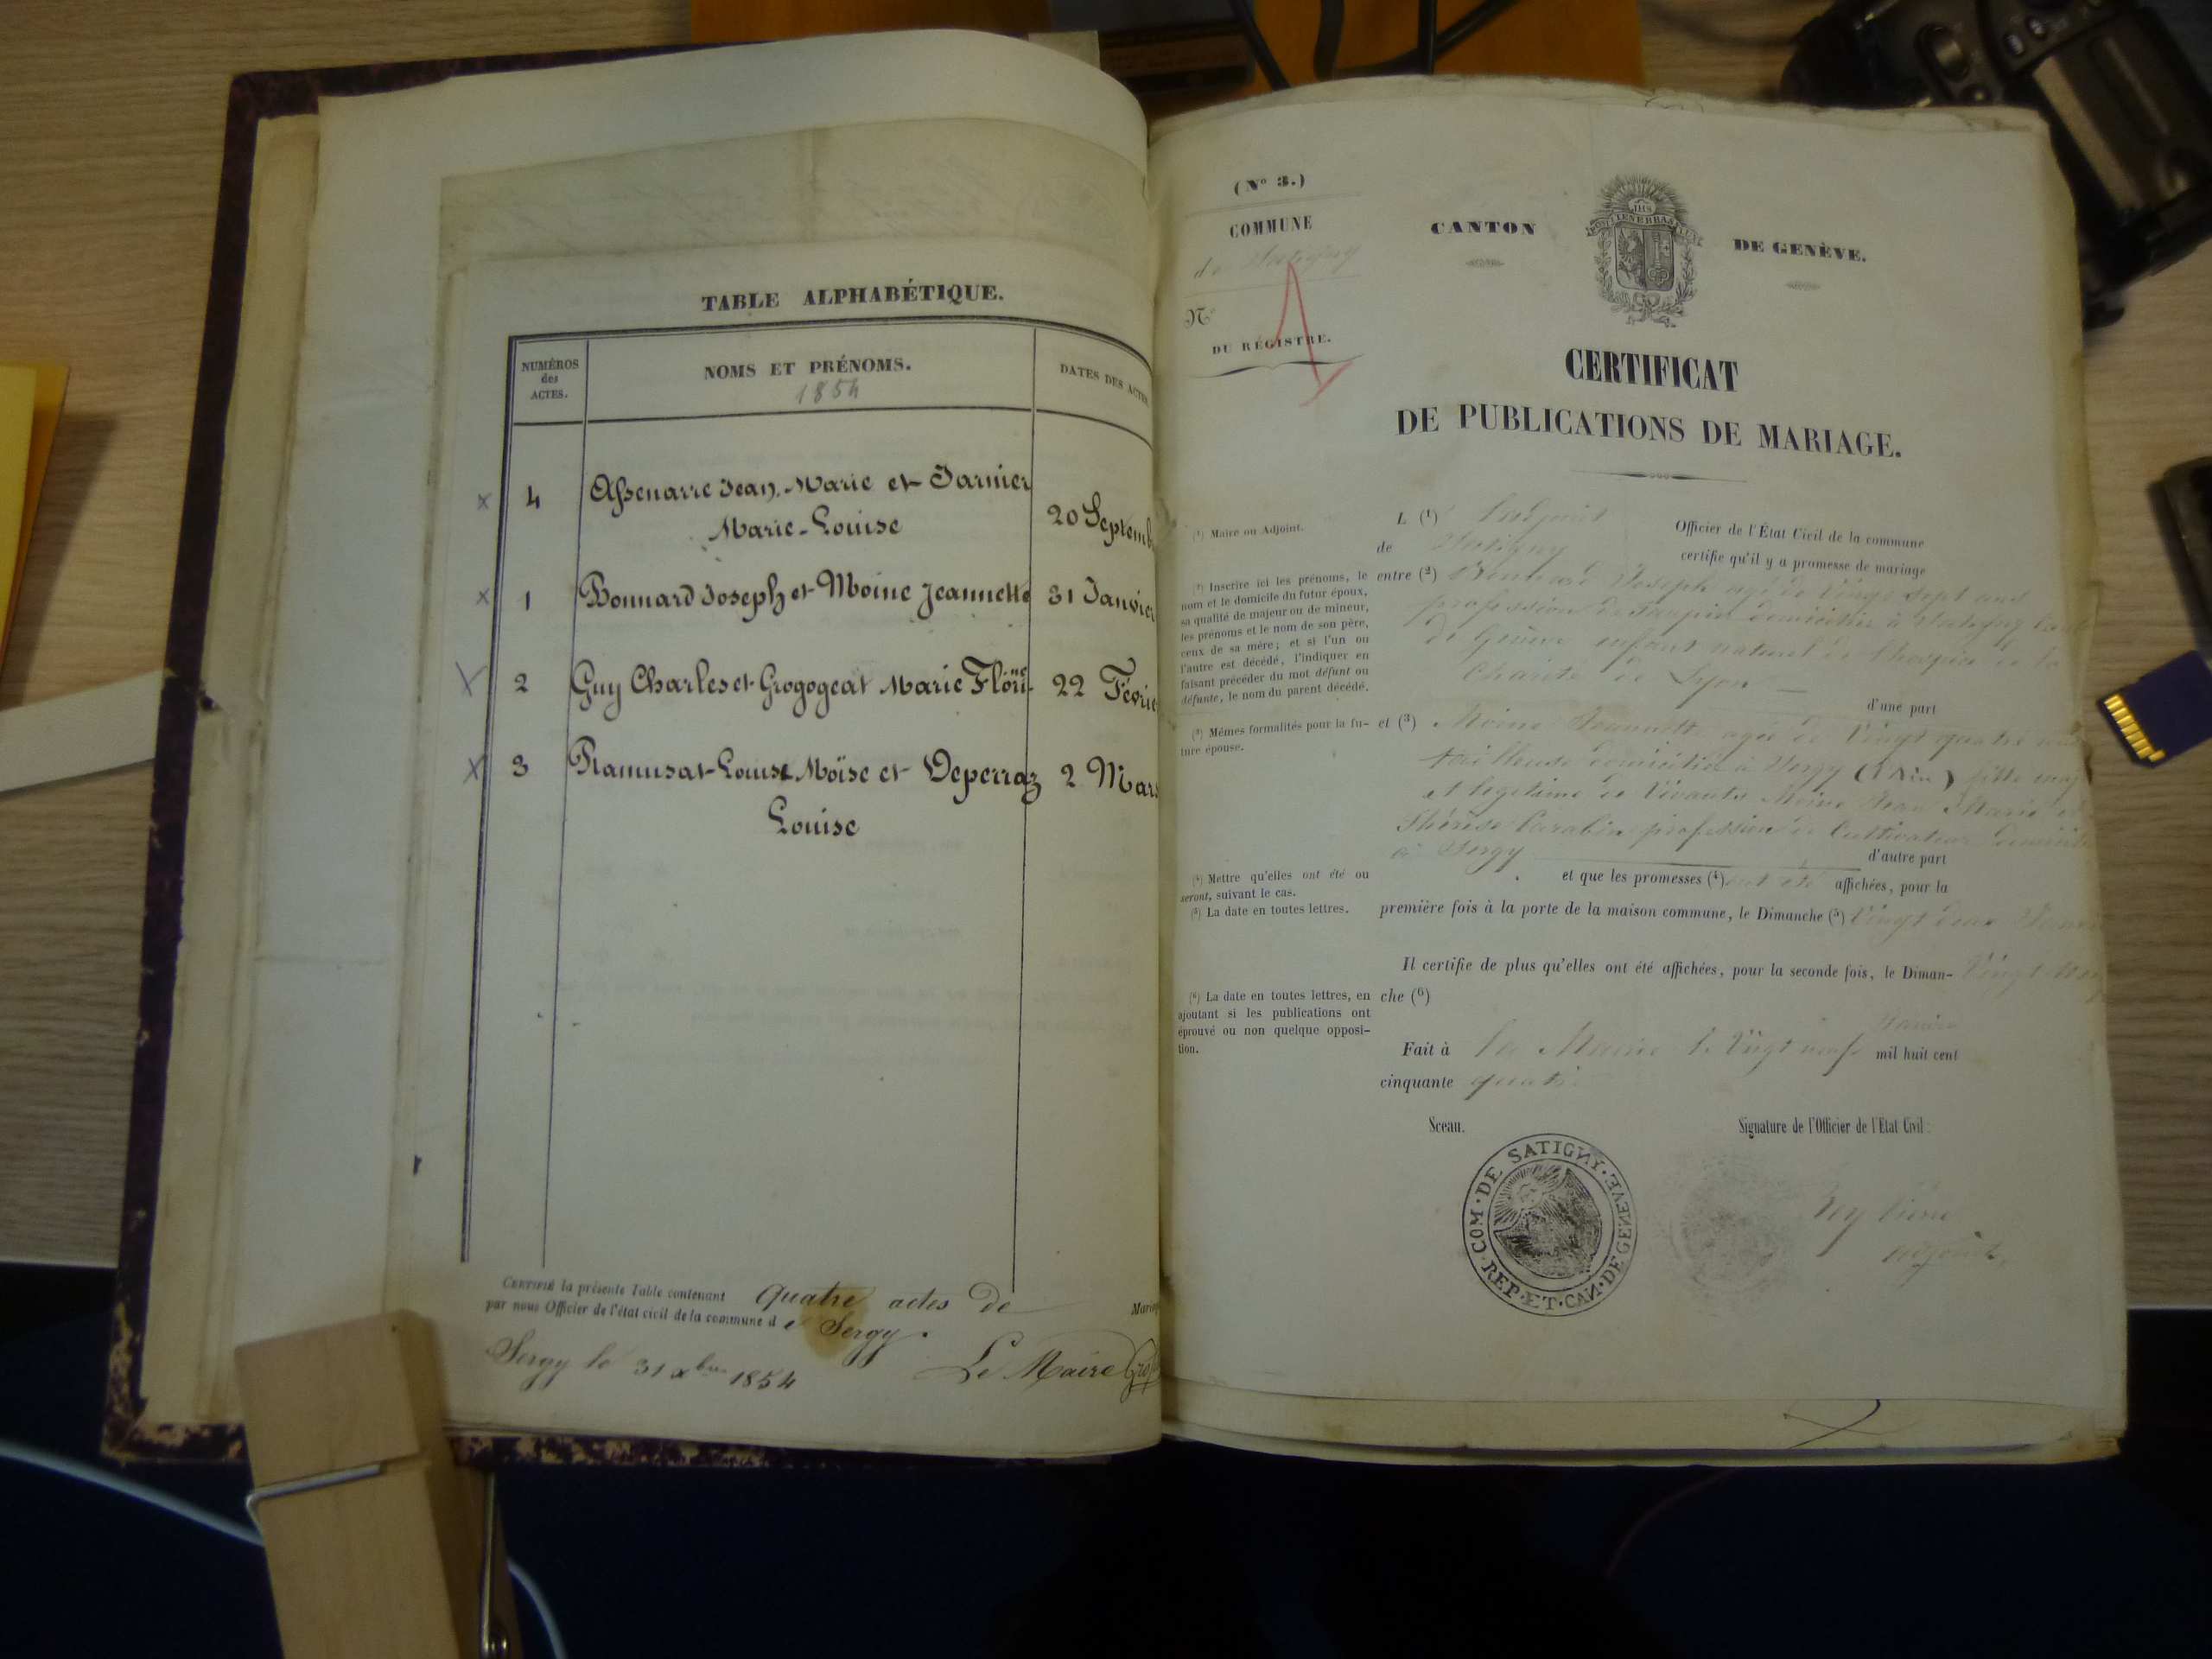 TABLE ALPHABÉTIQUE.
NUMÉROS
des
ACTES.
NOMS ET PRÉNOMS.
1854
DATES DES ACTES
4 Assenarre Jean, Marie et Jarnier
Marie-Louise
20 Septemb
1 Bonnard Joseph et Moine Jeannette 31 Janvier
2 Guy Charles et Grogogeat Marie Flori 22 Févrie
3 Ramusat-Louise Moïse et Deperraz 2 Mars
Louise
CERTIFIÉ la présente Table contenant Quatre actes de Mariag
par nous Officier de l'état civil de la commune d e Sergy.
Sergy le 31 xbre 1854
Le Maire
(No 3.)
COMMUNE
de Satigny
No
DU RÉGISTRE.
1
CANTON
DE GENÈVE.
IHS
POST TENEBRAS LUX
CERTIFICAT
DE PUBLICATIONS DE MARIAGE.
(1) Maire ou Adjoint.
L (1) l'adjoint Officier de l'État Civil de la commune
de Satigny certifie qu'il y a promesse de mariage
(2) Inscrire ici les prénoms, le
nom et le domicile du futur époux,
sa qualité de majeur ou de mineur,
les prénoms et le nom de son père,
ceux de sa mère; et si l'un ou
l'autre est décédé, l'indiquer en
faisant précéder du mot défunt ou
défunte, le nom du parent décédé.
entre (2) Bonnard Joseph agé de Vingt Sept ans
profession de domicilié à Satigny
de Genève enfant naturel de l'hospice de la
Charité de Lyon
d'une part
(3) Mêmes formalités pour la fu-
ture épouse.
et (3) Moine Jeannette agée de Vingt quatre ans
tailleuse domiciliée à Sergy (l'Ain) fille maj
et légitime de Vivants Moine Jean Marie et
Thérèse profession de Cultivateur
à Sergy
d'autre part
(4) Mettre qu'elles ont été ou
seront, suivant le cas.
(5) La date en toutes lettres.
et que les promesses (4) ont été affichées, pour la
première fois à la porte de la maison commune, le Dimanche (5) Vingt deux Janvi
Il certifie de plus qu'elles ont été affichées, pour la seconde fois, le Diman- Vingt neuf
(6) La date en toutes lettres, en
ajoutant si les publications ont
éprouvé ou non quelque opposi-
tion.
che (6)
Janvier
Fait à la Mairie le Vingt neuf mil huit cent
cinquante quatre
Sceau.
Signature de l'Officier de l'État Civil:
COM. DE SATIGNY. REP. ET. CAN. DE GENEVE.
adjoint